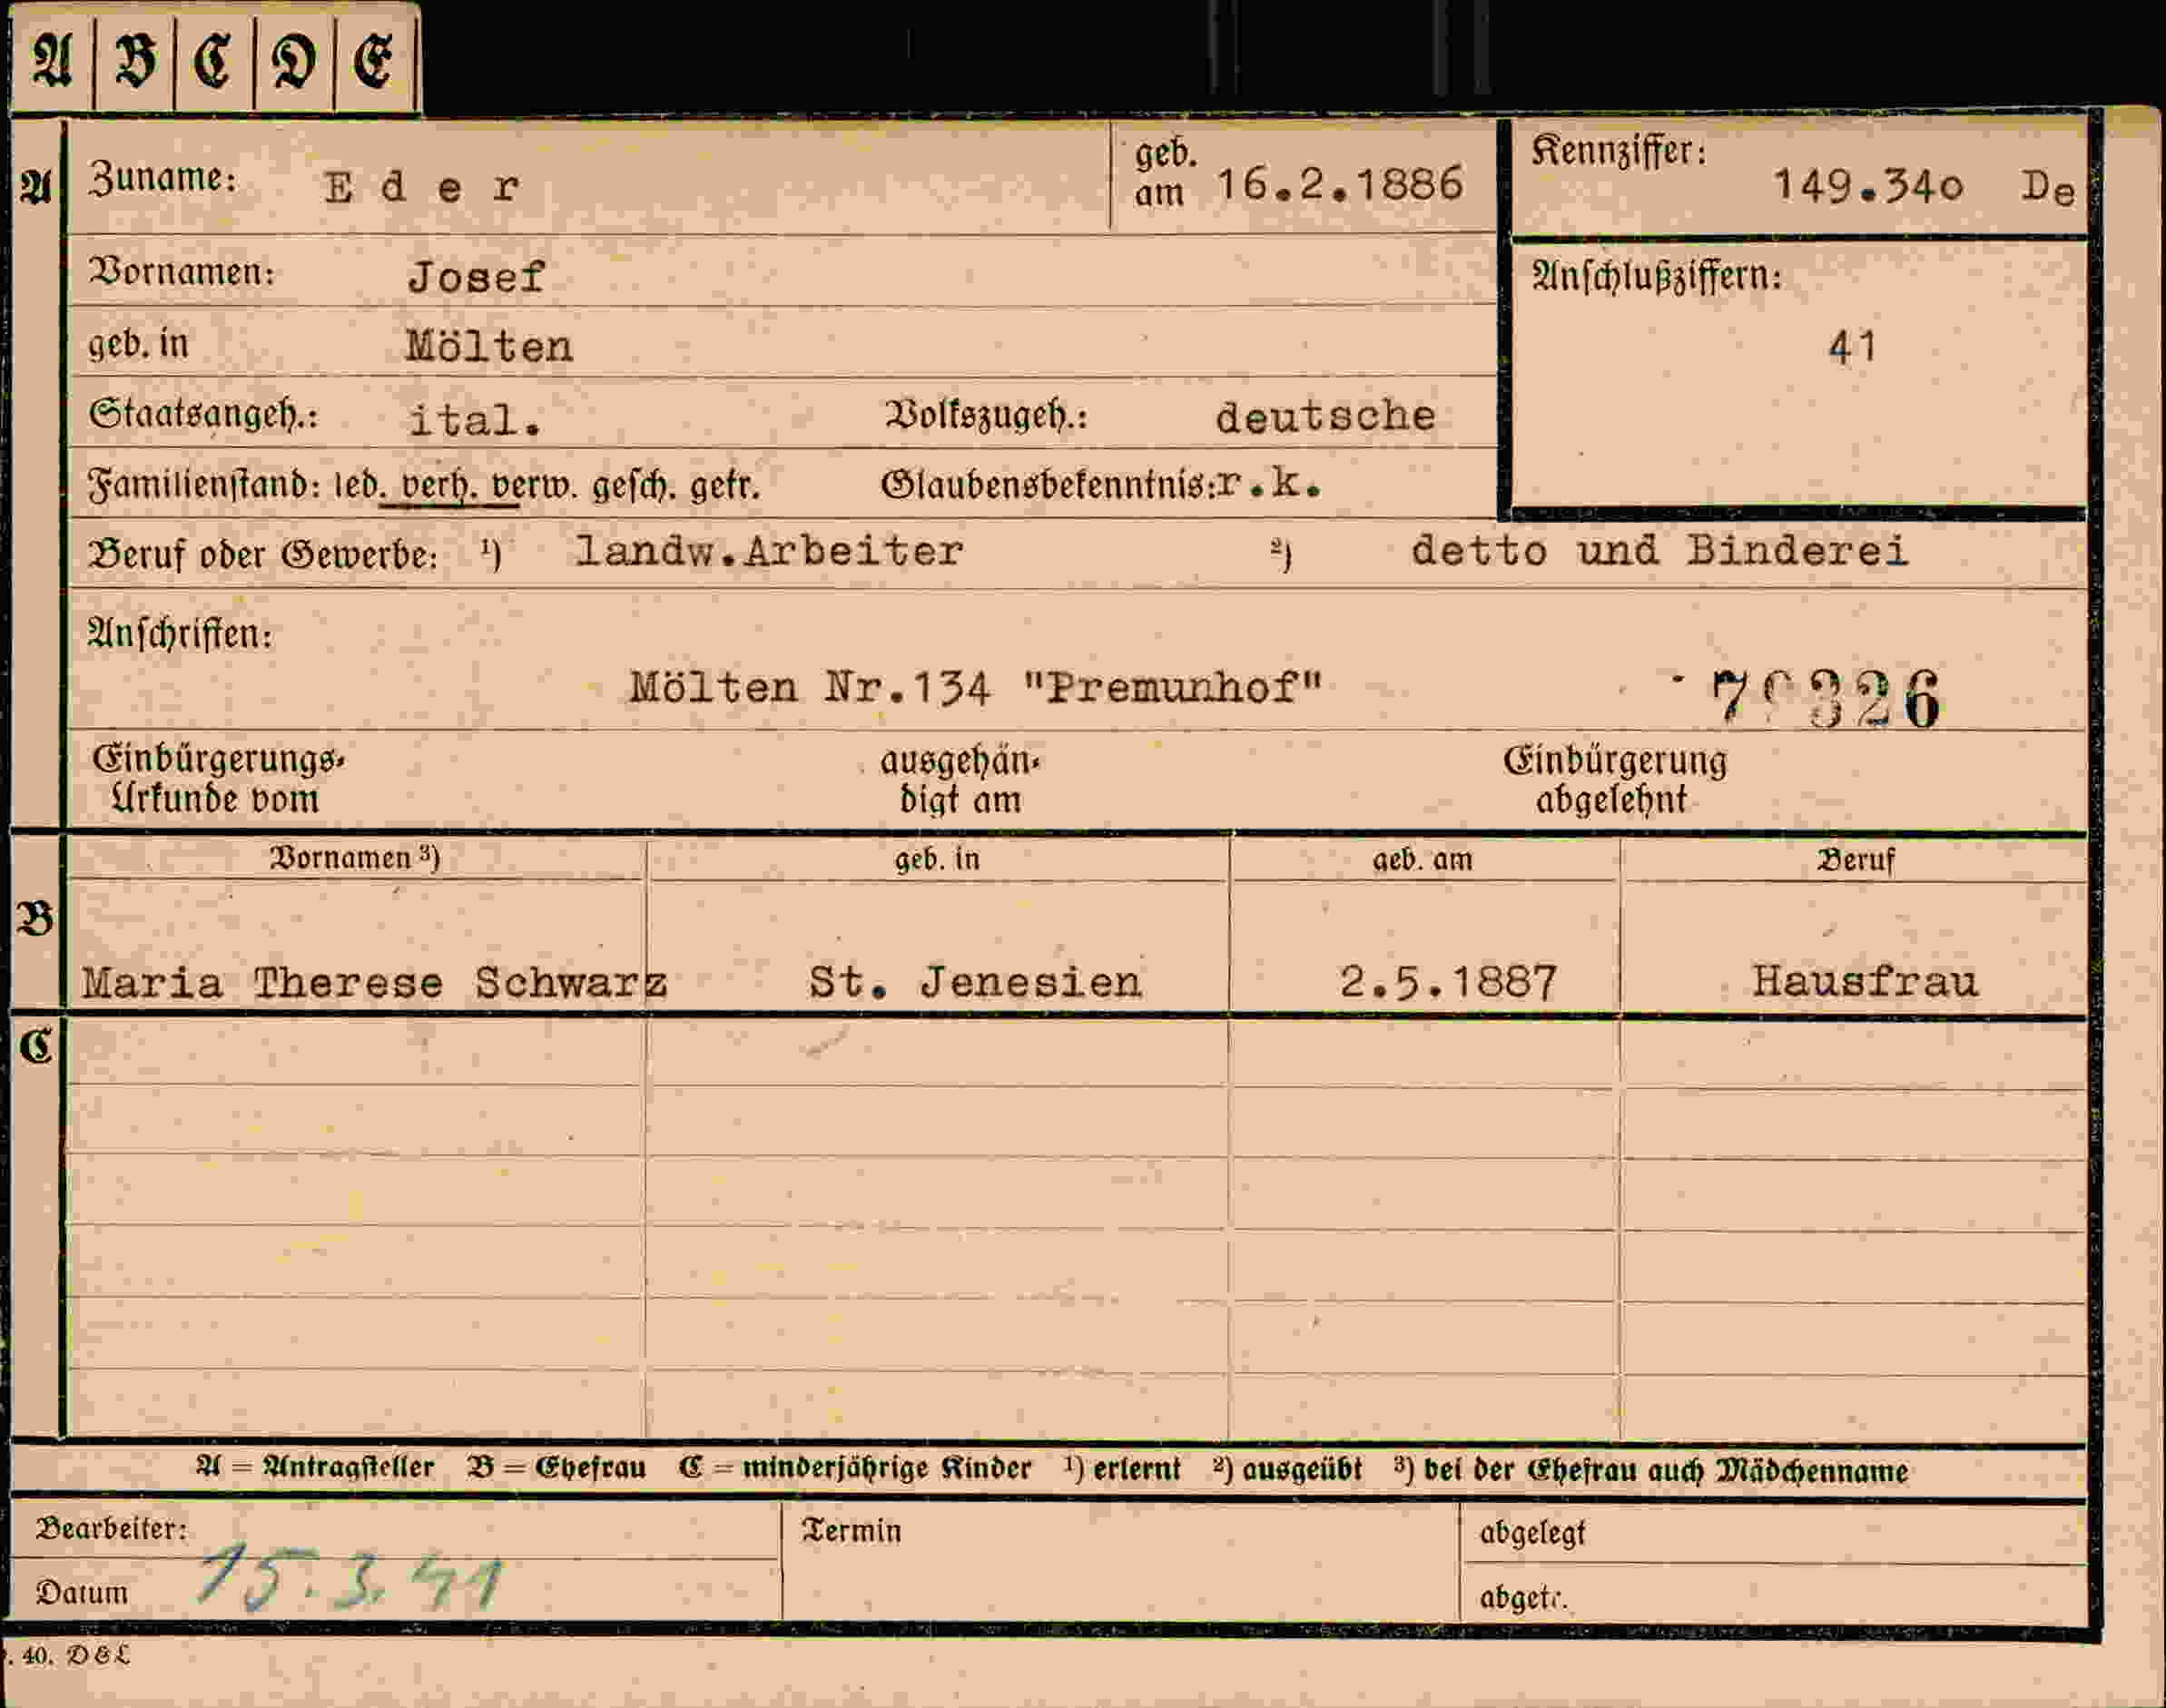 A B C D E
A Zuname: E d e r geb. am 16.2.1886 Kennziffer: 149.34o De
Vornamen: Josef Anschlußziffern:
geb. in Mölten 41
Staatsangeh.: ital. Volkszugeh.: deutsche
Familienstand: led. verh. verw. gesch. getr. Glaubensbekenntnis: r.k.
Beruf oder Gewerbe: ¹) landw.Arbeiter ²) detto und Binderei
Anschriften:
Mölten Nr.134 "Premunhof"
Einbürgerungs- ausgehän- Einbürgerung
Urkunde vom digt am abgelehnt
Vornamen ³) geb. in geb. am Beruf
B
Maria Therese Schwarz St. Jenesien 2.5.1887 Hausfrau
C
A = Antragsteller B = Ehefrau C = minderjährige Kinder ¹) erlernt ²) ausgeübt ³) bei der Ehefrau auch Mädchenname
Bearbeiter: Termin abgelegt
Datum 15.3.41 abgetr.
. 40. D&L